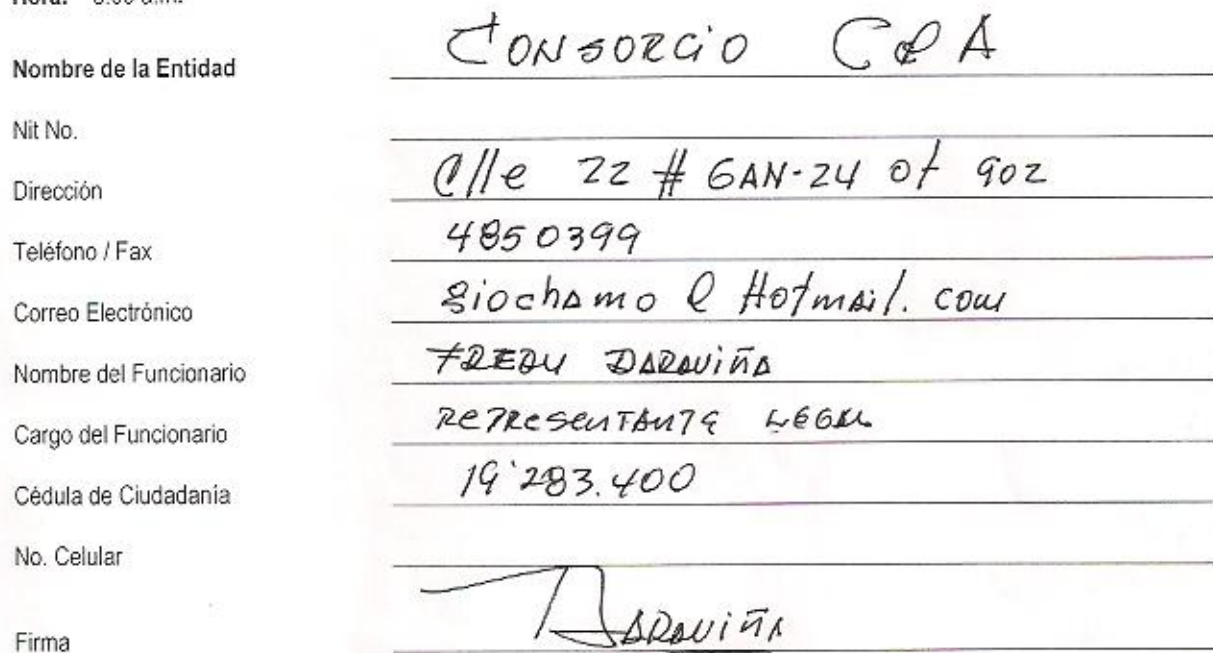 Nombre de la Entidad CONSORCIO
Nit No.
Dirección Clle 22 # 6AN-24 of 902
Teléfono / Fax 4850399
Correo Electrónico giochamo @ Hotmail. com
Nombre del Funcionario FREDY DARAVIÑA
Cargo del Funcionario REPRESENTANTE LEGAL
Cédula de Ciudadanía 19'283.400
No. Celular
Firma DARAVIÑA